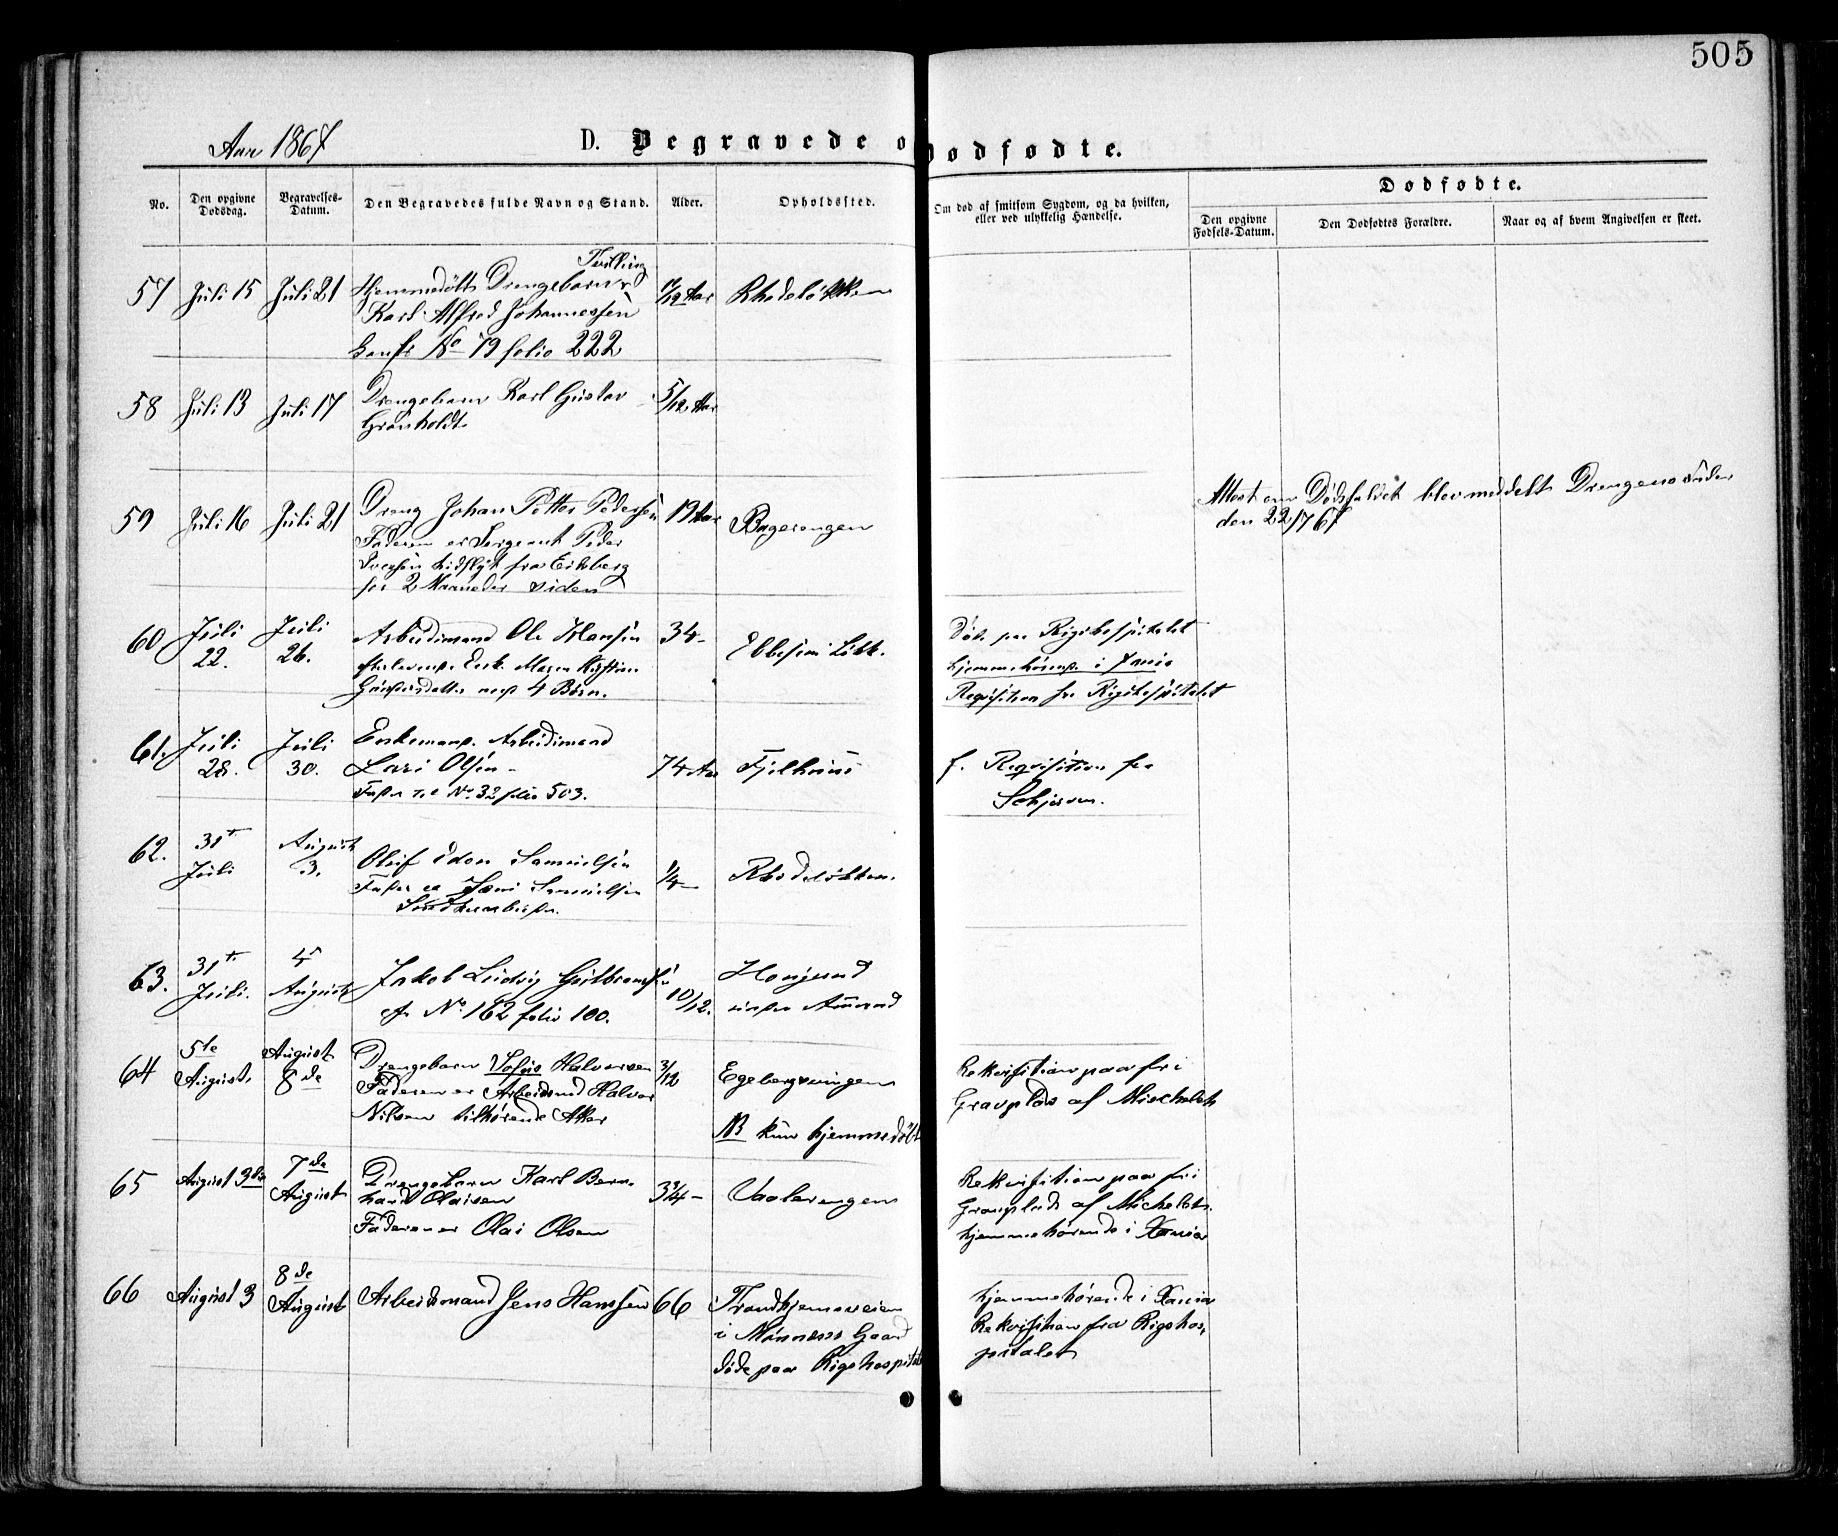 505
Aar 1867 D. Begravede o Dødfødte.
No. Den opgivne Dødsdag. Begravelses-Datum. Den Begravedes fulde Navn og Stand. Alder. Opholdssted. Om død af smitsom Sygdom, og da hvilken, eller ved ulykkelig Hændelse.
Dødfødte.
Den opgivne Fødsels-Datum. Den Dødfødtes Forældre. Naar og af hvem Angivelsen er skeet.
Tvilling
57 Juli 15 Juli 21 Hjemmedøbt Drengebarn
Karl Alfred Johannessen
No 79 folio 222
Aar Rhodeløkken
58 Juli 13 Juli 17 Drengebarn Karl Gustav 5/12 Aar
Grønholdt
59 Juli 16 Juli 21 Dreng Johan Petter Pedersen 19 Aar Bagerengen
Faderen er Sergeant Peder
fra Eidsberg
for 2 Maaneder siden
Attest om Dødsfaldet blev meddelt Drengens
den 22/7 67
60 Juli 22. Juli 26. Arbeidsmand Ole Hansen 34 - Ebbesens Løkk.
Enk. Maren
med 4 Børn.
Død paa Rigshospitalet
hjemmehørende i Xania
Reqvisition fra Rigshospitalet
61. Juli 28. Juli 30. Enkemand Arbeidsmand
Lars Olsen - 74 Aar Fjelhuus
No 32 folio 503.
f. Reqvisition fra
62. 31te Juli August 3. Oluf Edon Samuelsen 1/4 - Rhodeløkken.
Fader er Samuelsen
63. 31te Juli. 4 August Jakob Ludvig Gulbrandsen 10/12.
cfr No 162 folio 100.
under
64 5te August. August 8de Drengebarn Sofus Halvorsen 3/12 Egebergveingen
Faderen er Arbeidsmd Halvor
Nilsen tilhørende Aker
NB kun hjemmedøbt
Rekvisition paa fri
Gravplads af Michelet
65 August 3die 7de August Drengebarn Karl Bern-
hard Olaisen 3¾ - Vaalerengen
Faderen er Olai Olsen
Rekvisition paa fri
Gravplads af Michelet.
hjemmehørende i Xania
66 August 3 8de August Arbeidsmand Jens Hanssen 66 Trondhjemsveien
i Gaard
døde paa Rigshospitalet
hjemmehørende i Xania
Rekvisition fra Rigshos-
pitalet